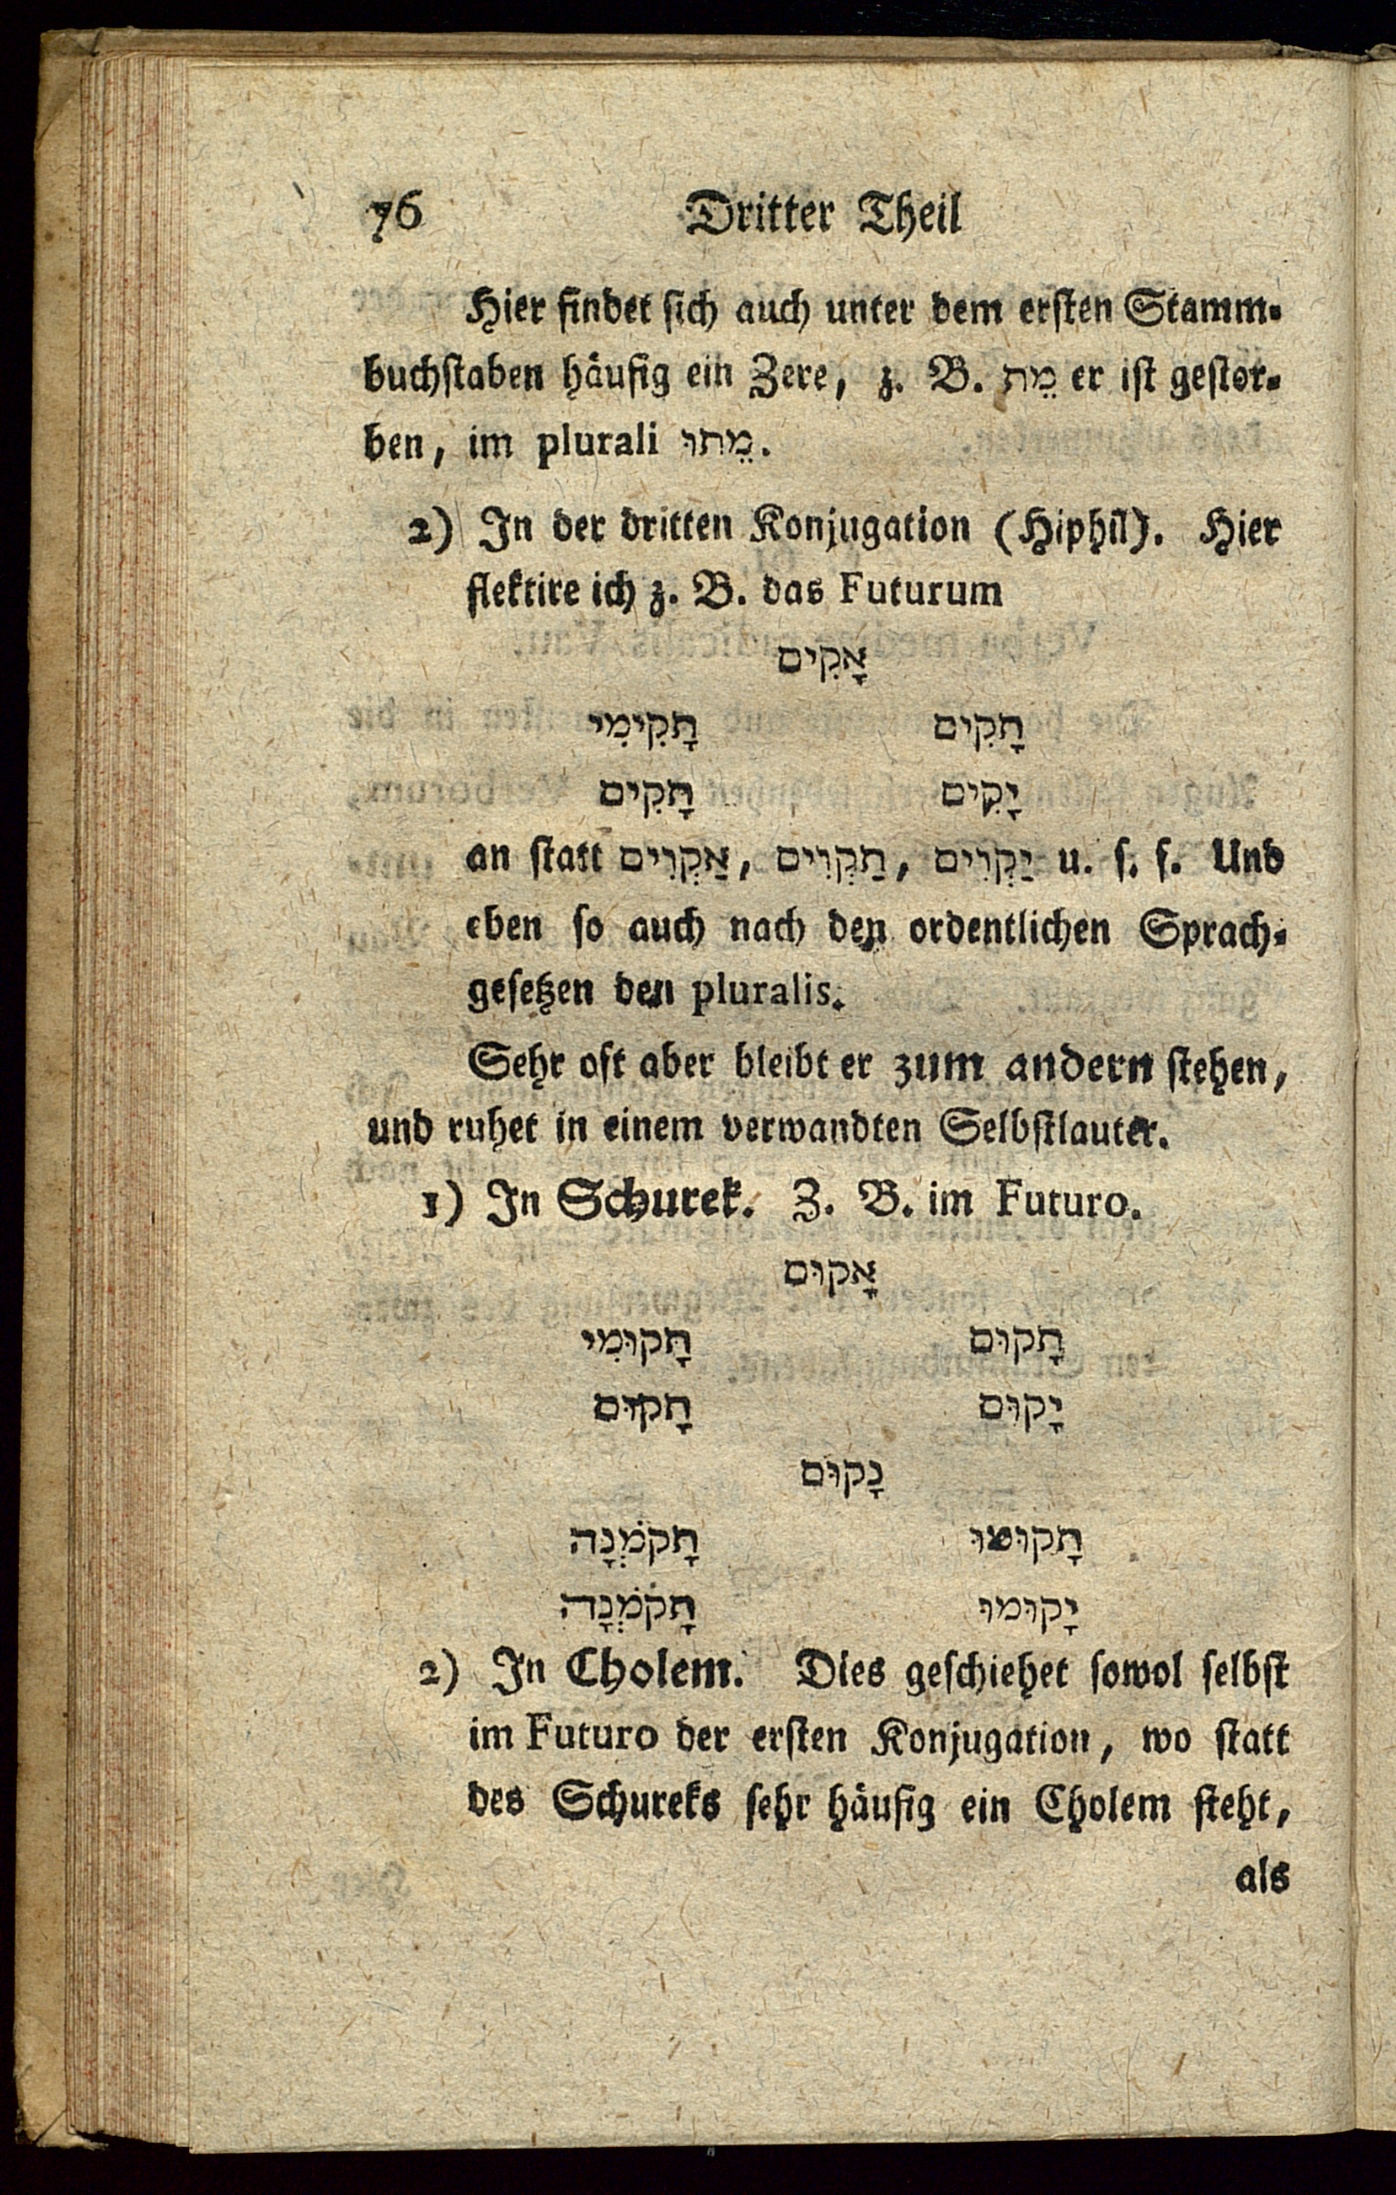 76 Dritter Theil
Hier findet sich auch unter dem ersten Stamm-
buchstaben häufig ein Zere, z. B. מֵת er ist gestor-
ben, im plurali מֵתוּ.
2) In der dritten Konjugation (Hiphil). Hier
flektire ich z. B. das Futurum
אָקִים
תָקִים תָקִימִי
יָקִים תָקִים
an statt אַקְוִים, תַקְוִים, יַקְוִים u. s. f. Und
eben so auch nach den ordentlichen Sprach-
gesetzen den pluralis.
Sehr oft aber bleibt er zum andern stehen,
und ruhet in einem verwandten Selbstlauter.
1) In Schurek. Z. B. im Futuro.
אָקוּם
תָקוּם תָקוּמִי
יָקוּם תָקוּם
נָקוּם
תָקוּמוּ תָקֹמְנָה
יָקוּמוּ תָקֹמְנָה
2) In Cholem. Dies geschiehet sowol selbst
im Futuro der ersten Konjugation, wo statt
des Schureks sehr häufig ein Cholem steht,
als